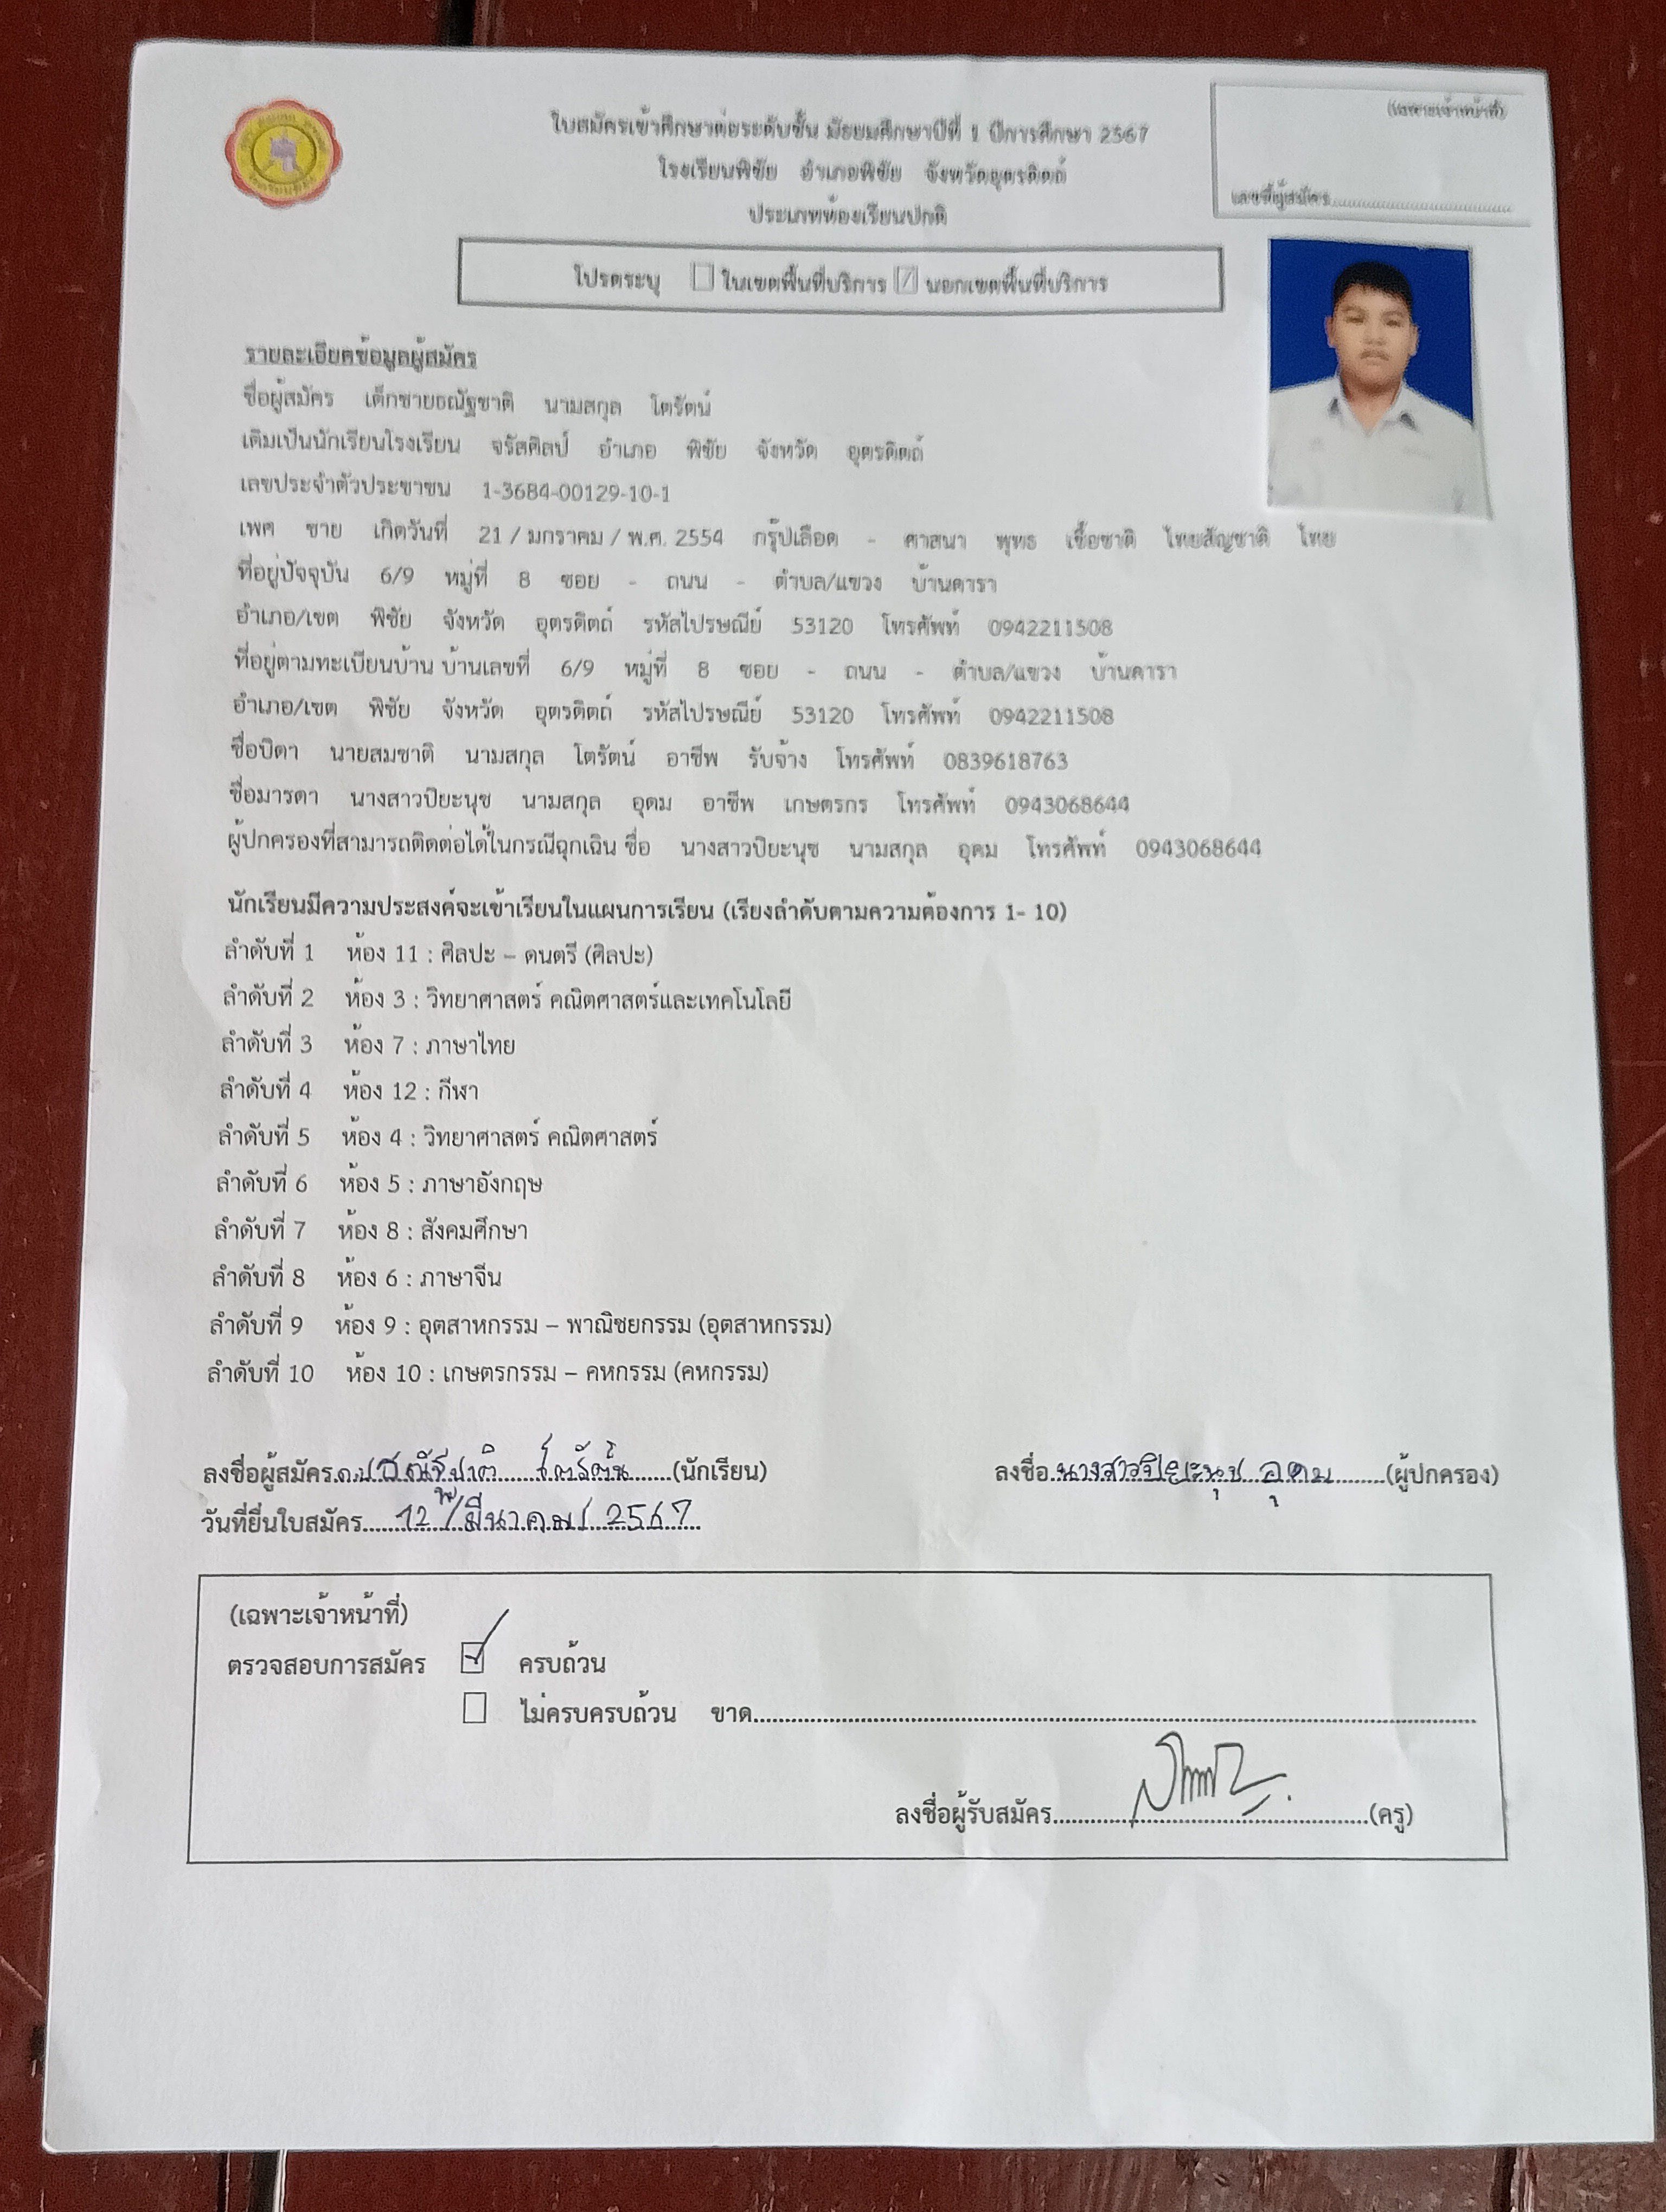 (เฉพาะเจ้าหน้าที่)
ใบสมัครเข้าศึกษาต่อระดับชั้น มัธยมศึกษาปีที่ 1 ปีการศึกษา 2567
โรงเรียนพิชัย อำเภอพิชัย จังหวัดอุตรดิตถ์
เลขที่ผู้สมัคร
ประเภทห้องเรียนปกติ
โปรดระบุ ในเขตพื้นที่บริการ นอกเขตพื้นที่บริการ
รายละเอียดข้อมูลผู้สมัคร
ชื่อผู้สมัคร เด็กชายธณัฐชาติ นามสกุล โตรัตน์
เดิมเป็นนักเรียนโรงเรียน จรัสศิลป์ อำเภอ พิชัย จังหวัด อุตรดิตถ์
เลขประจำตัวประชาชน 1-3684-00129-10-1
เพศ ชาย เกิดวันที่ 21 / มกราคม / พ.ศ. 2554 กรุ๊ปเลือด - ศาสนา พุทธ เชื้อชาติ ไทยสัญชาติ ไทย
ที่อยู่ปัจจุบัน 6/9 หมู่ที่ 8 ซอย - ถนน - ตำบล/แขวง บ้านดารา
อำเภอ/เขต พิชัย จังหวัด อุตรดิตถ์ รหัสไปรษณีย์ 53120 โทรศัพท์ 0942211508
ที่อยู่ตามทะเบียนบ้าน บ้านเลขที่ 6/9 หมู่ที่ 8 ซอย - ถนน - ตำบล/แขวง บ้านดารา
อำเภอ/เขต พิชัย จังหวัด อุตรดิตถ์ รหัสไปรษณีย์ 53120 โทรศัพท์ 0942211508
ชื่อบิดา นายสมชาติ นามสกุล โตรัตน์ อาชีพ รับจ้าง โทรศัพท์ 0839618763
ชื่อมารดา นางสาวปิยะนุช นามสกุล อุดม อาชีพ เกษตรกร โทรศัพท์ 0943068644
ผู้ปกครองที่สามารถติดต่อได้ในกรณีฉุกเฉิน ชื่อ นางสาวปิยะนุช นามสกุล อุดม โทรศัพท์ 0943068644
นักเรียนมีความประสงค์จะเข้าเรียนในแผนการเรียน (เรียงลำดับตามความต้องการ 1- 10)
ลำดับที่ 1 ห้อง 11 : ศิลปะ – ดนตรี (ศิลปะ)
ลำดับที่ 2 ห้อง 3 : วิทยาศาสตร์ คณิตศาสตร์และเทคโนโลยี
ลำดับที่ 3 ห้อง 7 : ภาษาไทย
ลำดับที่ 4 ห้อง 12 : กีฬา
ลำดับที่ 5 ห้อง 4 : วิทยาศาสตร์ คณิตศาสตร์
ลำดับที่ 6 ห้อง 5 : ภาษาอังกฤษ
ลำดับที่ 7 ห้อง 8 : สังคมศึกษา
ลำดับที่ 8 ห้อง 6 : ภาษาจีน
ลำดับที่ 9 ห้อง 9 : อุตสาหกรรม – พาณิชยกรรม (อุตสาหกรรม)
ลำดับที่ 10 ห้อง 10 : เกษตรกรรม – คหกรรม (คหกรรม)
ลงชื่อผู้สมัคร ด.ช ธณัฐชาติ โตรัตน์ (นักเรียน) ลงชื่อ นางสาวปิยะนุช อุดม (ผู้ปกครอง)
วันที่ยื่นใบสมัคร 12 / มีนาคม / 2567
(เฉพาะเจ้าหน้าที่)
ตรวจสอบการสมัคร ครบถ้วน
ไม่ครบครบถ้วน ขาด
ลงชื่อผู้รับสมัคร (ครู)